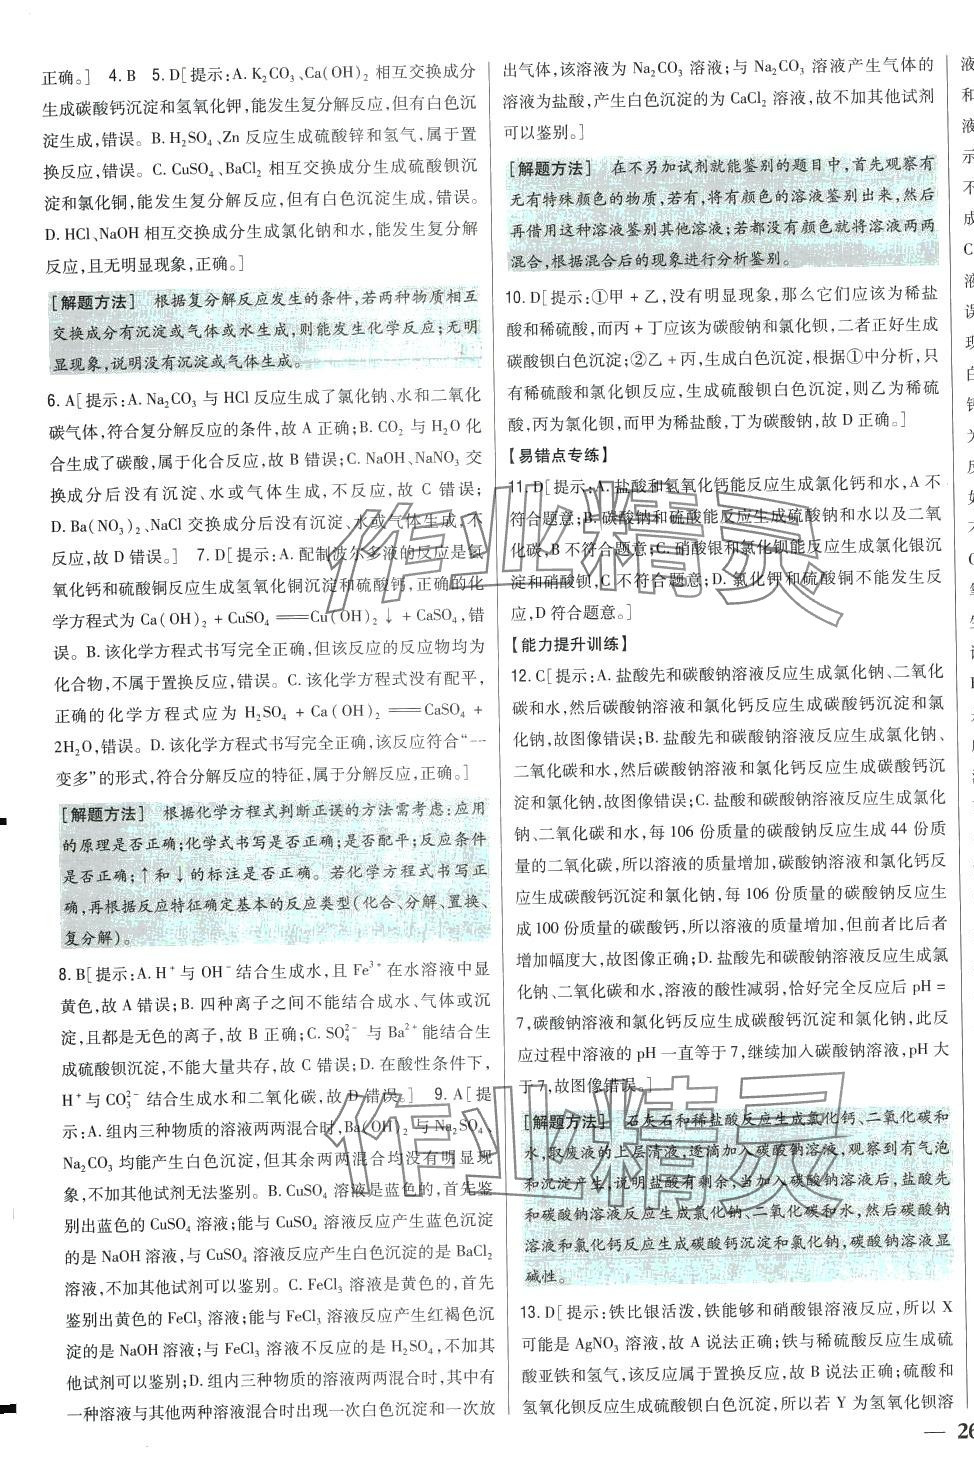 正确。] 4. B 5. D[提示:A. K₂CO₃、Ca(OH)₂ 相互交换成分
生成碳酸钙沉淀和氢氧化钾,能发生复分解反应,但有白色沉
淀生成,错误。B. H₂SO₄、Zn 反应生成硫酸锌和氢气,属于置
换反应,错误。C. CuSO₄、BaCl₂ 相互交换成分生成硫酸钡沉
淀和氯化铜,能发生复分解反应,但有白色沉淀生成,错误。
D. HCl、NaOH 相互交换成分生成氯化钠和水,能发生复分解
反应,且无明显现象,正确。]
[解题方法] 根据复分解反应发生的条件,若两种物质相互
交换成分有沉淀或气体或水生成,则能发生化学反应;无明
显现象,说明没有沉淀或气体生成。
6. A[提示:A. Na₂CO₃ 与 HCl 反应生成了氯化钠、水和二氧化
碳气体,符合复分解反应的条件,故 A 正确;B. CO₂ 与 H₂O 化
合生成了碳酸,属于化合反应,故 B 错误;C. NaOH、NaNO₃ 交
换成分后没有沉淀、水或气体生成,不反应,故 C 错误;
D. Ba(NO₃)₂、NaCl 交换成分后没有沉淀、水或气体生成,不
反应,故 D 错误。] 7. D[提示:A. 配制波尔多液的反应是氢
氧化钙和硫酸铜反应生成氢氧化铜沉淀和硫酸钙,正确的化
学方程式为 Ca(OH)₂ + CuSO₄ ══ Cu(OH)₂↓ + CaSO₄,错
误。B. 该化学方程式书写完全正确,但该反应的反应物均为
化合物,不属于置换反应,错误。C. 该化学方程式没有配平,
正确的化学方程式应为 H₂SO₄ + Ca(OH)₂ ══ CaSO₄ +
2H₂O,错误。D. 该化学方程式书写完全正确,该反应符合“一
变多”的形式,符合分解反应的特征,属于分解反应,正确。]
[解题方法] 根据化学方程式判断正误的方法需考虑:应用
的原理是否正确;化学式书写是否正确;是否配平;反应条件
是否正确;↑和↓的标注是否正确。若化学方程式书写正
确,再根据反应特征确定基本的反应类型(化合、分解、置换、
复分解)。
8. B[提示:A. H⁺ 与 OH⁻ 结合生成水,且 Fe³⁺ 在水溶液中显
黄色,故 A 错误;B. 四种离子之间不能结合成水、气体或沉
淀,且都是无色的离子,故 B 正确;C. SO₄²⁻ 与 Ba²⁺ 能结合生
成硫酸钡沉淀,不能大量共存,故 C 错误;D. 在酸性条件下,
H⁺ 与 CO₃²⁻ 结合生成水和二氧化碳,故 D 错误。] 9. A[提
示:A. 组内三种物质的溶液两两混合时,Ba(OH)₂ 与 Na₂SO₄、
Na₂CO₃ 均能产生白色沉淀,但其余两两混合均没有明显现
象,不加其他试剂无法鉴别。B. CuSO₄ 溶液是蓝色的,首先鉴
别出蓝色的 CuSO₄ 溶液;能与 CuSO₄ 溶液反应产生蓝色沉淀
的是 NaOH 溶液,与 CuSO₄ 溶液反应产生白色沉淀的是 BaCl₂
溶液,不加其他试剂可以鉴别。C. FeCl₃ 溶液是黄色的,首先
鉴别出黄色的 FeCl₃ 溶液;能与 FeCl₃ 溶液反应产生红褐色沉
淀的是 NaOH 溶液;与 FeCl₃ 溶液不反应的是 H₂SO₄ 溶液,不
加其他试剂可以鉴别;D. 组内三种物质的溶液两两混合时,其中有
一种溶液与其他两种溶液混合时出现一次白色沉淀和一次放
出气体,该溶液为 Na₂CO₃ 溶液;与 Na₂CO₃ 溶液产生气体的
溶液为盐酸,产生白色沉淀的为 CaCl₂ 溶液,故不加其他试剂
可以鉴别。]
[解题方法] 在不另加试剂就能鉴别的题目中,首先观察有
无有特殊颜色的物质,若有,将有颜色的溶液鉴别出来,然后
再借用这种溶液鉴别其他溶液;若都没有颜色就将溶液两两
混合,根据混合后的现象进行分析鉴别。
10. D[提示:①甲 + 乙,没有明显现象,那么它们应该为稀盐
酸和稀硫酸,而丙 + 丁应该为碳酸钠和氯化钡,二者正好生成
碳酸钡白色沉淀;②乙 + 丙,生成白色沉淀,根据①中分析,只
有稀硫酸和氯化钡反应,生成硫酸钡白色沉淀,则乙为稀硫
酸,丙为氯化钡,而甲为稀盐酸,丁为碳酸钠,故 D 正确。]
【易错点专练】
11. D[提示:A. 盐酸和氢氧化钙能反应生成氯化钙和水,A 不
符合题意;B. 碳酸钠和硫酸能反应生成硫酸钠和水以及二氧
化碳,B 不符合题意;C. 硝酸银和氯化钡能反应生成氯化银沉
淀和硝酸钡,C 不符合题意;D. 氯化钾和硫酸铜不能发生反
应,D 符合题意。]
【能力提升训练】
12. C[提示:A. 盐酸先和碳酸钠溶液反应生成氯化钠、二氧化
碳和水,然后碳酸钠溶液和氯化钙反应生成碳酸钙沉淀和氯
化钠,故图像错误;B. 盐酸先和碳酸钠溶液反应生成氯化钠、
二氧化碳和水,然后碳酸钠溶液和氯化钙反应生成碳酸钙沉
淀和氯化钠,故图像错误;C. 盐酸和碳酸钠溶液反应生成氯化
钠、二氧化碳和水,每 106 份质量的碳酸钠反应生成 44 份质
量的二氧化碳,所以溶液的质量增加,碳酸钠溶液和氯化钙反
应生成碳酸钙沉淀和氯化钠,每 106 份质量的碳酸钠反应生
成 100 份质量的碳酸钙,所以溶液的质量增加,但前者比后者
增加幅度大,故图像正确;D. 盐酸和碳酸钠溶液反应生成氯
化钠、二氧化碳和水,溶液的酸性减弱,恰好完全反应后 pH =
7,碳酸钠溶液和氯化钙反应生成碳酸钙沉淀和氯化钠,此反
应过程中溶液的 pH 一直等于 7,继续加入碳酸钠溶液,pH 大
于 7,故图像错误。]
[解题方法] 石灰石和稀盐酸反应生成氯化钙、二氧化碳和
水,取废液的上层清液,逐滴加入碳酸钠溶液,观察到有气泡
和沉淀产生,说明盐酸有剩余,当加入碳酸钠溶液后,盐酸先
和碳酸钠溶液反应生成氯化钠、二氧化碳和水,然后碳酸钠
溶液和氯化钙反应生成碳酸钙沉淀和氯化钠,碳酸钠溶液显
碱性。
13. D[提示:铁比银活泼,铁能够和硝酸银溶液反应,所以 X
可能是 AgNO₃ 溶液,故 A 说法正确;铁与稀硫酸反应生成硫
酸亚铁和氢气,该反应属于置换反应,故 B 说法正确;硫酸和
氢氧化钡反应生成硫酸钡白色沉淀,所以若 Y 为氢氧化钡溶
— 26
作业精灵
作业精灵